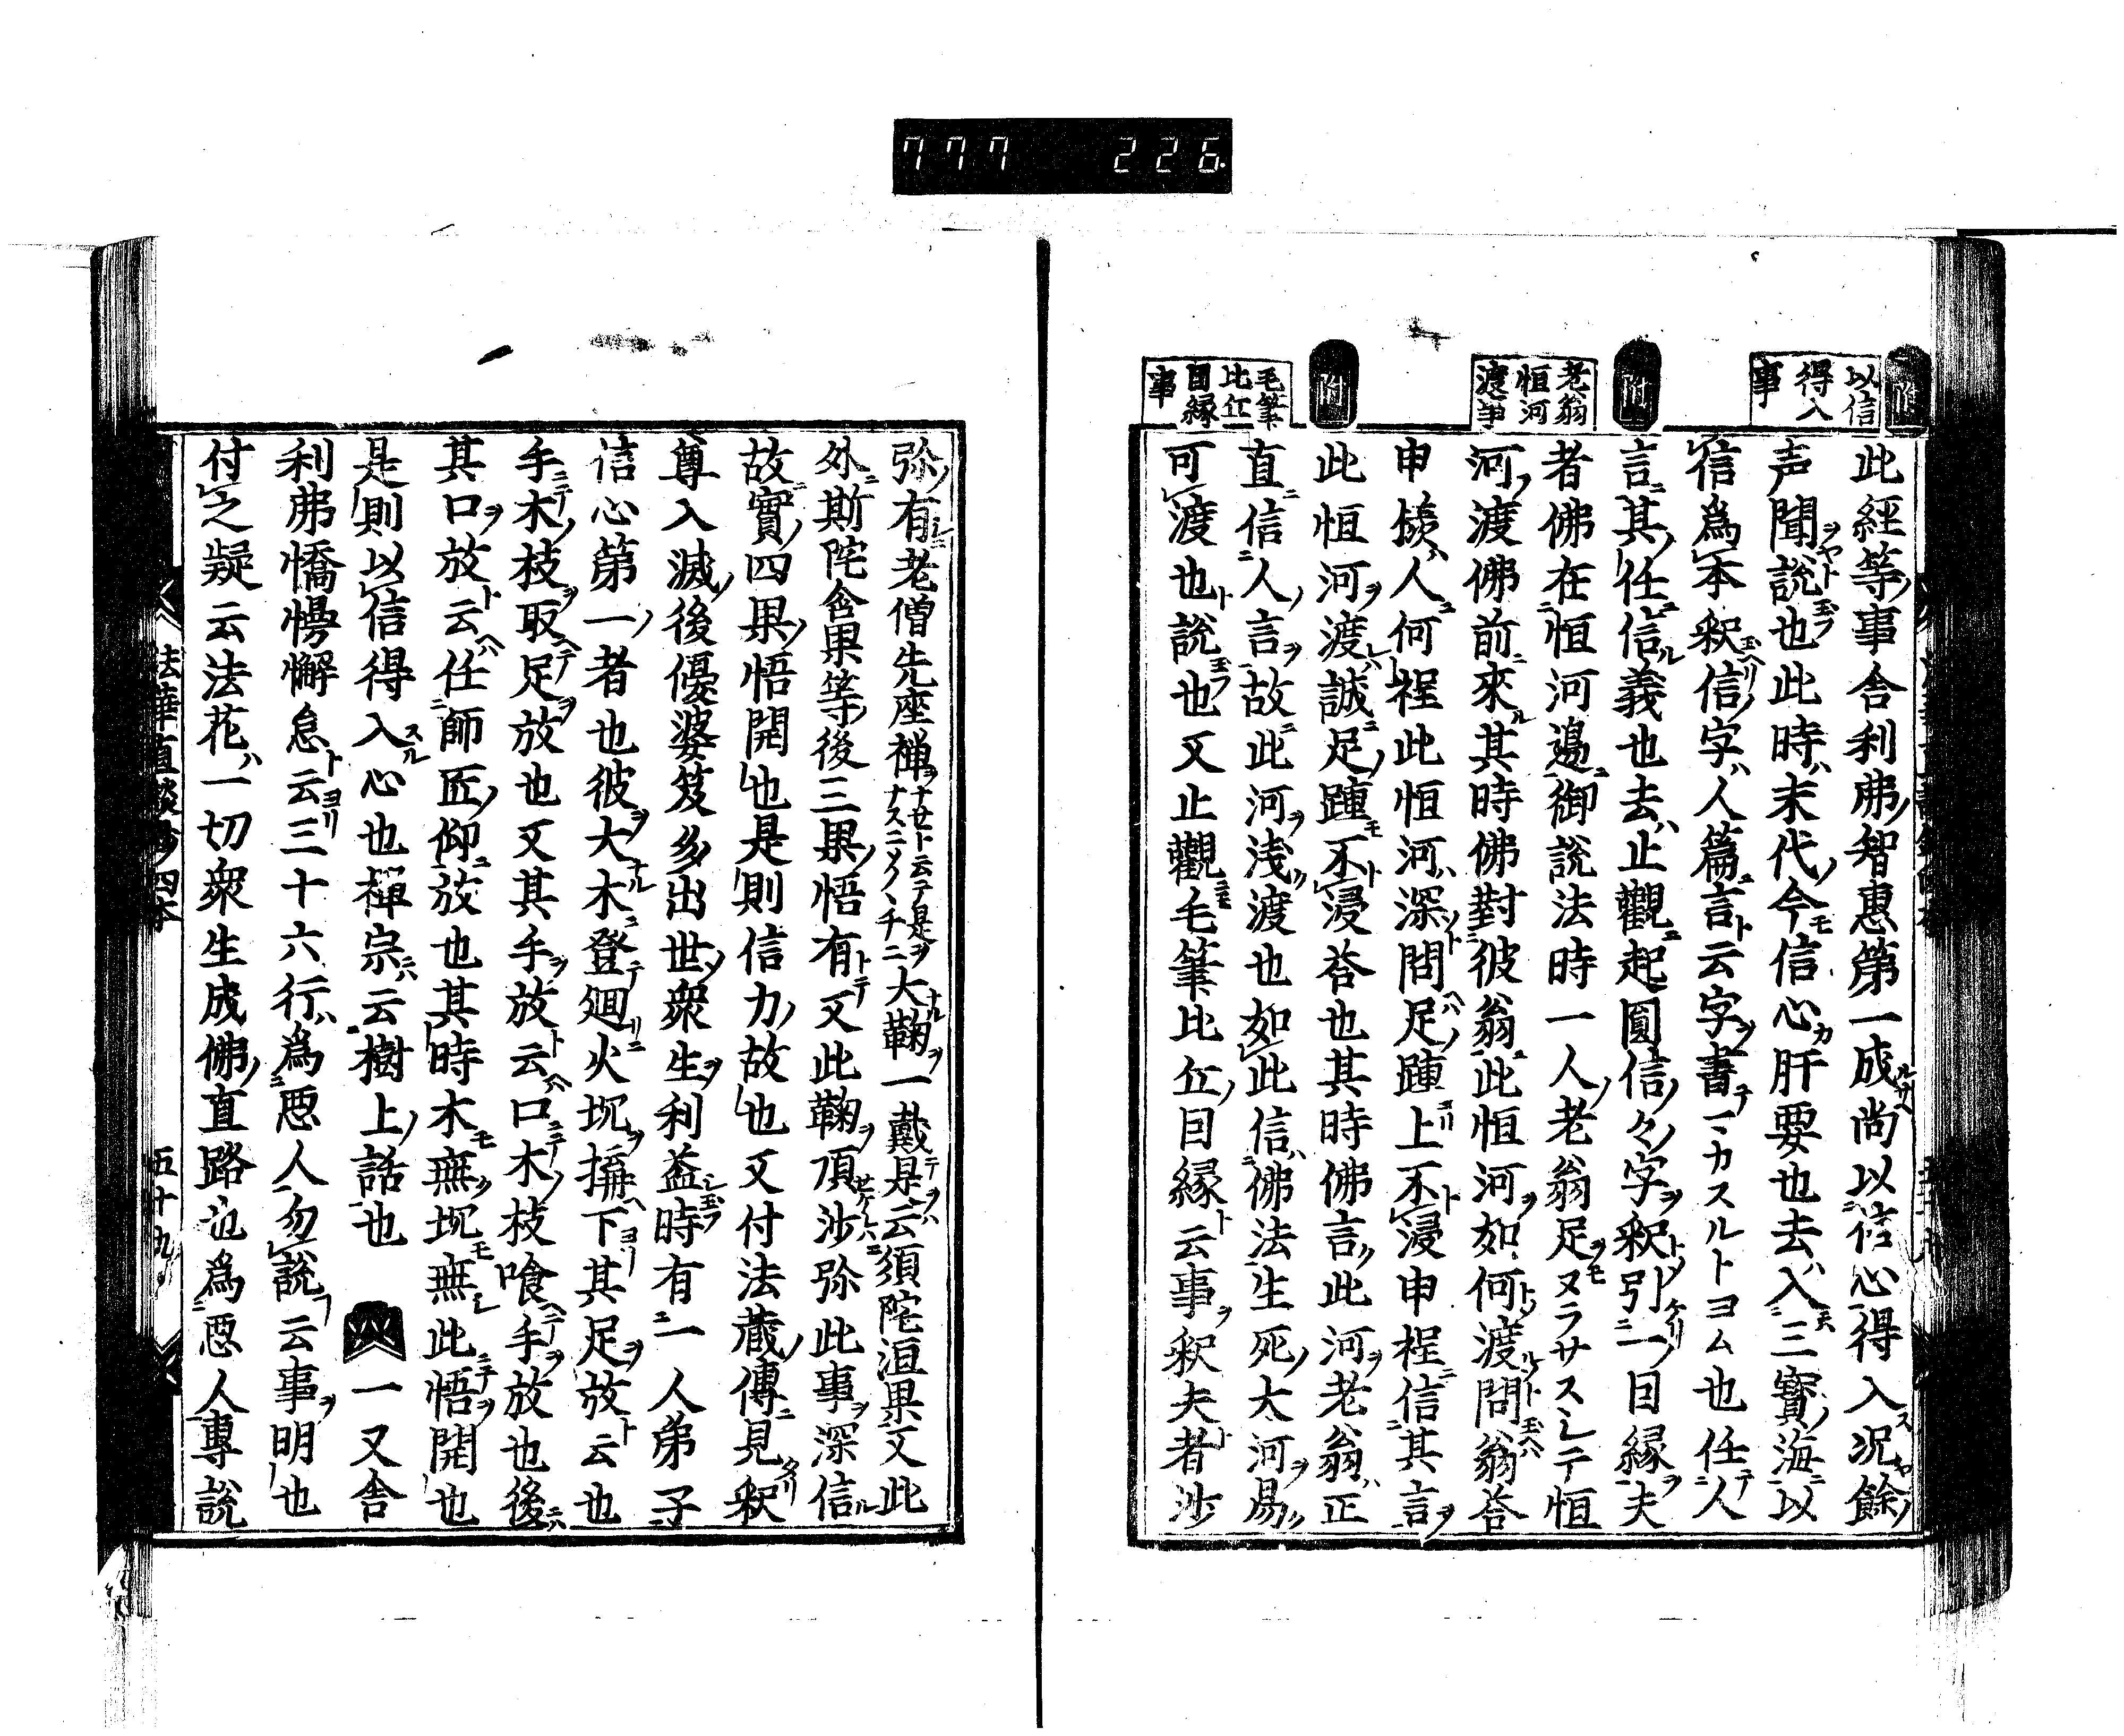 777 226
以信
得入
事
老翁
恒河
渡事
毛筆
比丘
因縁
事
此経等事舎利弗智恵第一成尚以信心得入況餘
声聞說也此時末代今信心肝要也去入三寶海以
信為本釈信字人篇言云字書マカスルトヨム也任人
言其任信義也去止觀起圓信々字釈引一因縁夫
者佛在恒河邊御說法時一人老翁足ヌラサスシテ恒
河渡佛前來其時佛對彼翁此恒河如何渡問翁答
申様人何程此恒河深問足踵上不浸申程信其言
此恒河渡誠足踵不浸答也其時佛言此河老翁正
直信人言故此河浅渡也如此信佛法生死大河易
可渡也說也又止觀毛筆比丘因縁云事釈夫者沙
弥有老僧先座禅ナサト云テ是大鞠一戴是云須陀洹果又此
外斯陀含果等後三果悟有又此鞠頂沙弥此事深信
故實四果悟開也是則信力故也又付法蔵傳見釈
尊入滅後優婆笈多出世衆生利益時有一人弟子
信心第一者也彼大木登廻火坑揵下其足放云也
手木枝取足放也又其手放云口木枝喰手放也後
其口放云任師匠仰放也其時木無坑無此悟開也
是則以信得入心也禅宗云樹上話也 一又舎
利弗憍慢懈怠云三十六行為悪人勿說云事明也
付之疑云法花一切衆生成佛直路也為悪人專說
法華直談鈔 四本 五十九